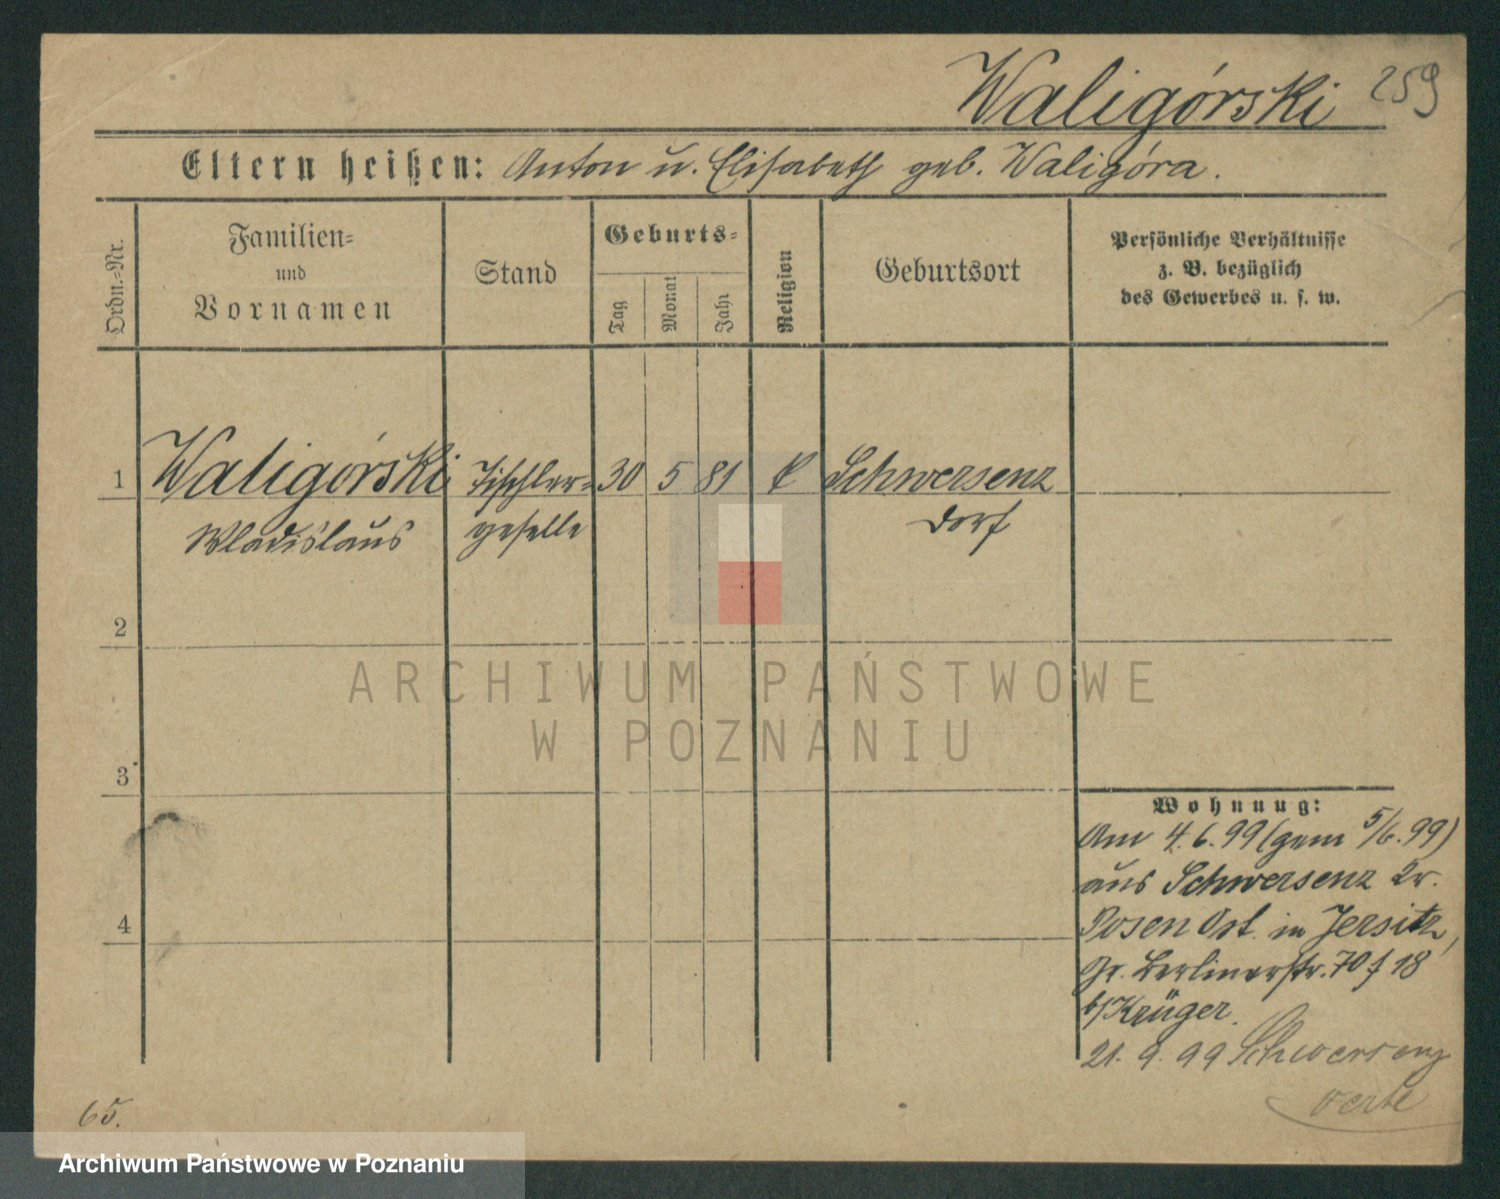 Waligórski 259
Eltern heißen: Anton u. Elisabeth geb. Waligóra.
Ordn.-Nr.
Familien-
und
Vornamen
Stand
Geburts-
Tag
Monat
Jahr
Religion
Geburtsort
Persönliche Verhältnisse
z. B. bezüglich
des Gewerbes u. s. w.
1 Waligórski Tischler- 30 5 81 k Schwersenz
Wladislaus geselle Dorf
2
3
4
ARCHIWUM PAŃSTWOWE
W POZNANIU
Wohnung:
Am 4.6.99 (gem 5/6.99)
aus Schwersenz Kr.
Posen Ost in Jersitz,
Gr. Berlinerstr. 70 f 18
b/Krüger.
21. 9. 99 Schwersenz
65.
Archiwum Państwowe w Poznaniu